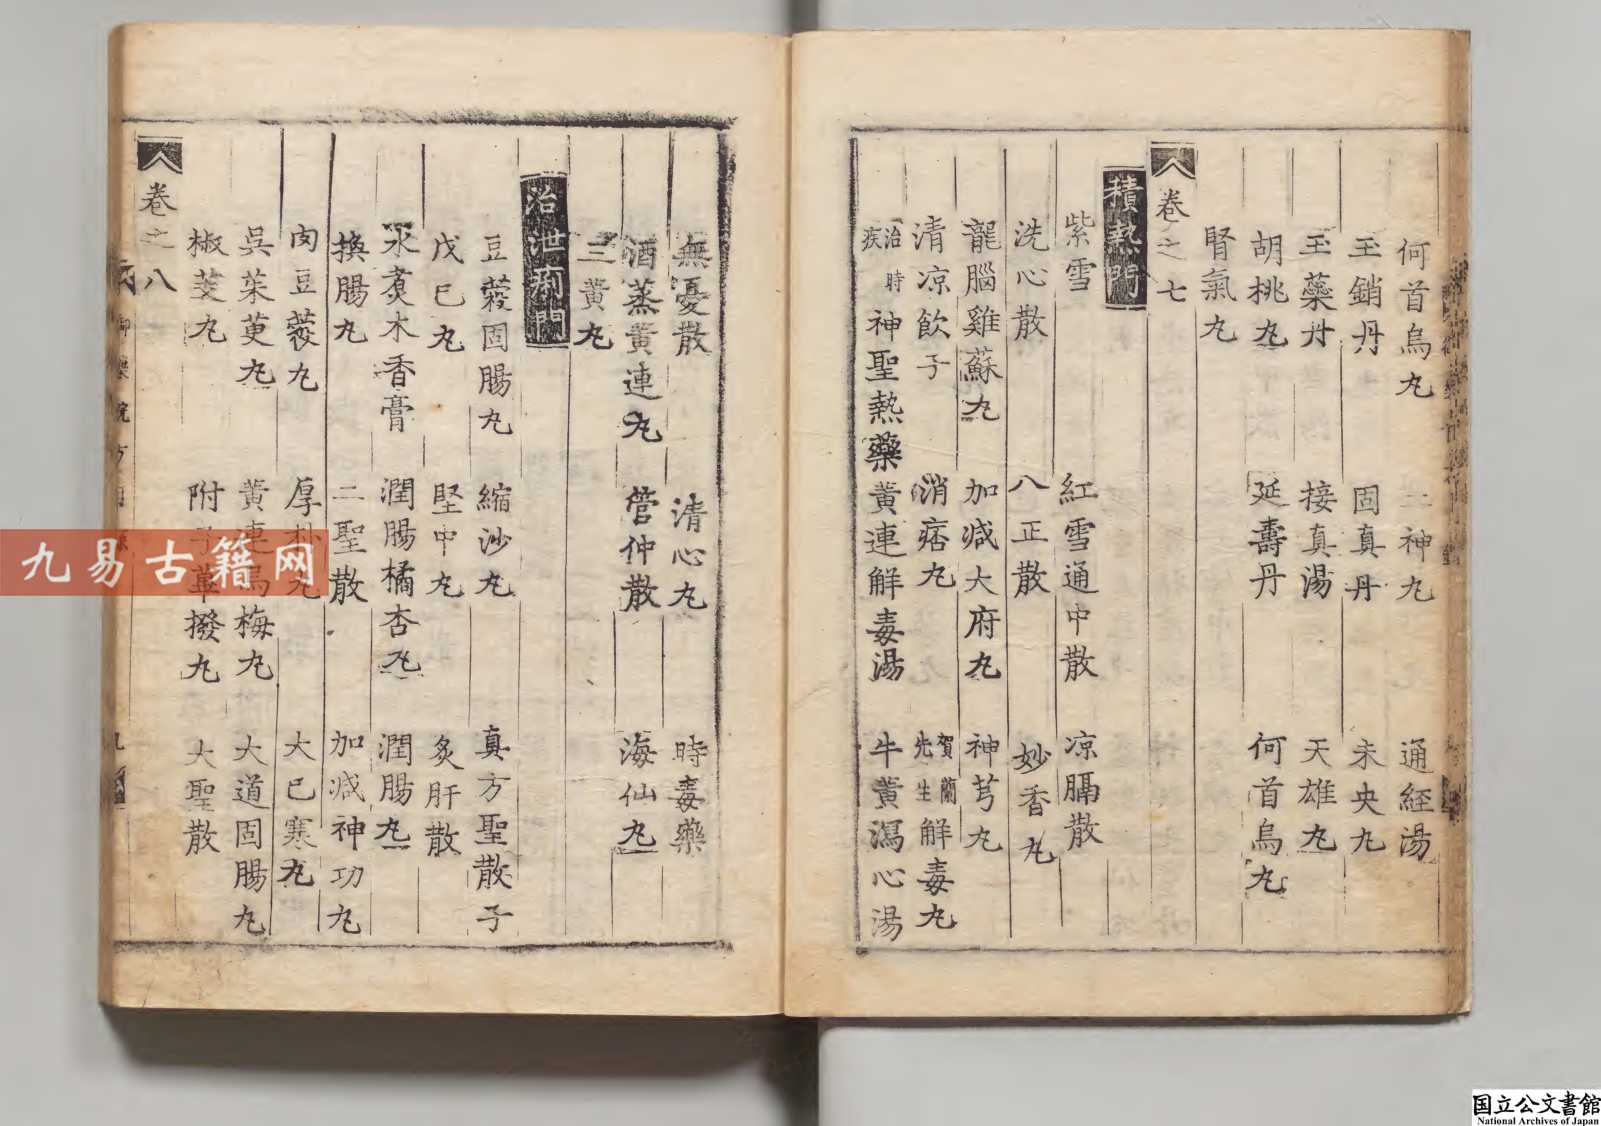 何首烏丸 二神丸 通経湯
玉鎖丹 固真丹 未央丸
玉藥丹 接真湯 天雄丸
胡桃丸 延壽丹 何首烏丸
腎氣丸
卷之七
積熱門
紫雪 紅雪通中散 凉膈散
洗心散 八正散 妙香丸
龍腦雞蘇丸 加减大府丸 神芎丸
清凉飲子 消痞丸 賀蘭先生解毒丸
治時疾神聖熱藥 黃連解毒湯 牛黃瀉心湯
無憂散 清心丸 時毒藥
酒蒸黃連丸 管仲散 海仙丸
三黃丸
治泄痢門
豆蔻固腸丸 縮沙丸 真方聖散子
戊己丸 堅中丸 炙肝散
水煑木香膏 潤腸橘杏丸 潤腸丸
換腸丸 二聖散 加减神功丸
肉豆蔻丸 厚朴丸 大已寒丸
吳茱萸丸 黃連烏梅丸 大道固腸丸
椒 丸 附子蓽撥丸 大聖散
卷之八
御藥院方目
九
九易古籍网
国立公文書館
National Archives of Japan